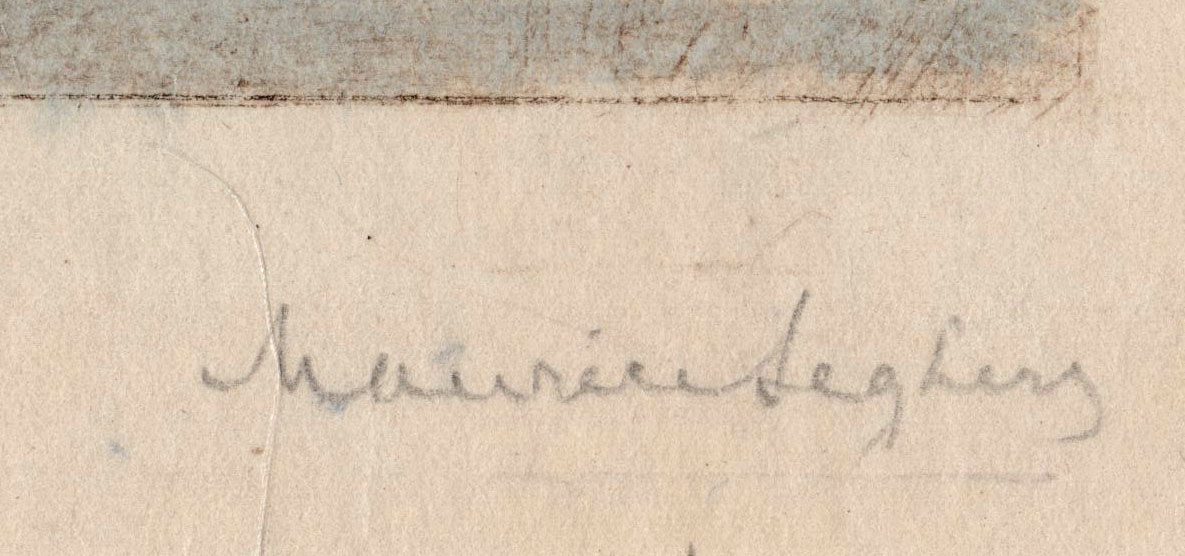 Maurice Seghers